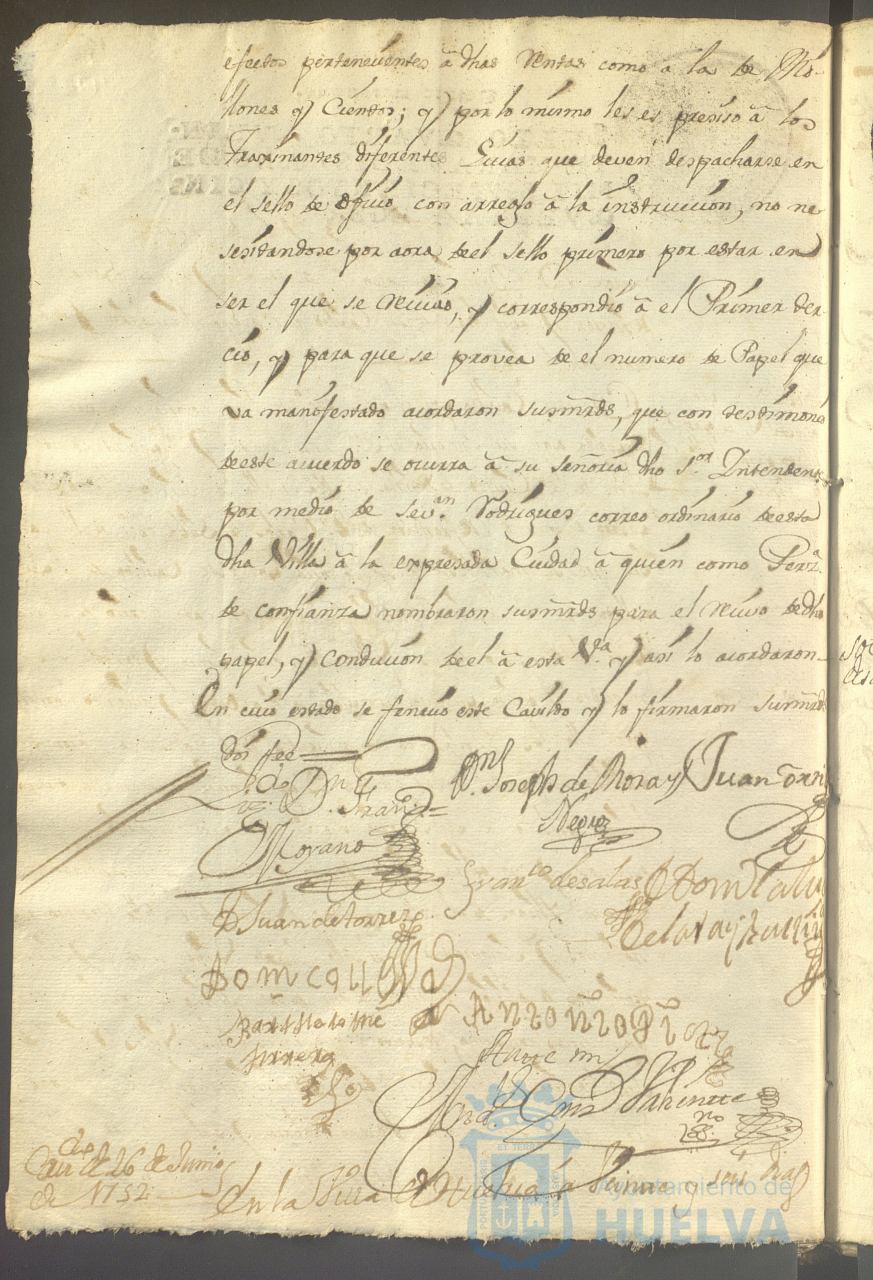 efectos pertenecientes â dhas Rentas como â la de Mi-
llones y Cientos; y por lo mismo les es presiso â los
Traxinantes diferentes Guias que deven despacharse en
el sello de oficio con arreglo â la instrucción, no ne
sesitandose por aora de el sello primero por estar en
ser el que se reciuio, y correspondio â el Primer ter-
cio, y para que se provea de el numero de Papel que
va manifestado acordaron susmrds, que con testimonio
de este acuerdo se ocurra â su señoria dho sor. Intendente
por medio de sevan. Rodrigues correo ordinario de esta
dha Villa â la expresada Ciudad â quien como Perza.
de confianza nombraron susmrds para el reciuo de dho
papel, y Conducion de el â esta Va. y asi lo acordaron
En cuio estado se feneció este Cavildo y lo firmaron susmrds
doi fee
Ldo. Dn. Frano.
Moyano
Dn. Joseph de Mora y
Negro
Juan
Franco desalas
D Juan de Torres
de la
Bartholome
Herrera
Antonio
Ante mi
Cavdo. de 26 de Junio
de 1752
En la Villa de Huelva â Veinte y seis dias
Ayuntamiento de
HUELVA